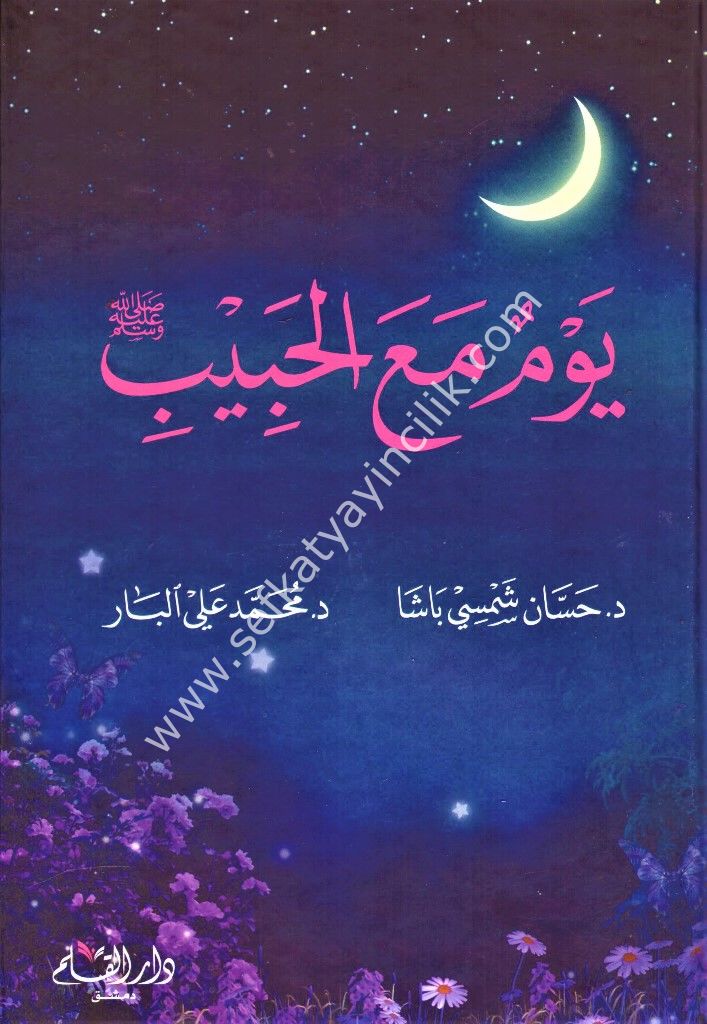 يَوْمٌ مَعَ الحَبِيْبِ ﷺ
د. حَسَّان شَمْسِيْ بَاشَا
د. مُحَمَّد عَلِي البَار
www.sefkatyayincilik.com
دار القلم
دمشق